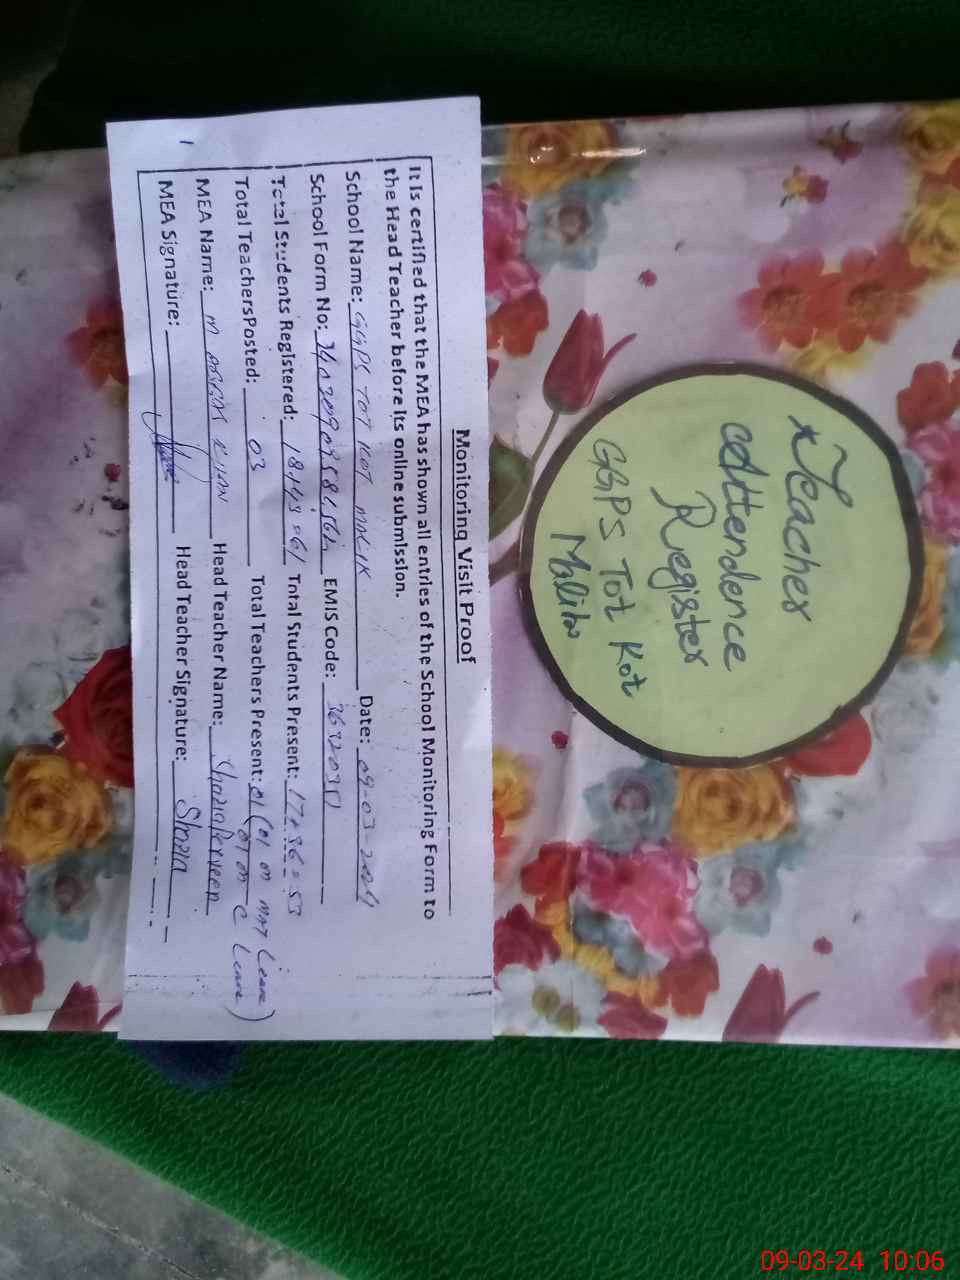 Teacher
Attendence
Register
GGPS Tot Kot
Malik
Monitoring Visit Proof
It is certified that the MEA has shown all entries of the School Monitoring Form to
the Head Teacher before its online submission.
School Name: GGPS TOT KOT MALIK Date: 09-03-2024
School Form No: EMIS Code:
Total Students Registered: 18+43=61 Total Students Present: 17+36=53
Total Teachers Posted: 03 Total Teachers Present: 01 (01 on MAT Leave
01 on C Leave)
MEA Name: M Head Teacher Name: Shazia Perveen
MEA Signature: Head Teacher Signature: Shazia
09-03-24 10:06